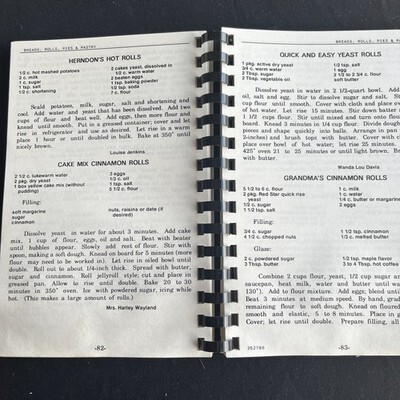 BREADS, ROLLS, PIES & PASTRY
HERNDON'S HOT ROLLS
1/2 c. hot mashed potatoes
1 c. milk
1 c. sugar
1 tsp. salt
1/2 c. shortening
2 cakes yeast, dissolved in
1/2 c. warm water
2 beaten eggs
1 tsp. baking powder
1/2 tsp. soda
7 c. flour
Scald potatoes, milk, sugar, salt and shortening and
cool. Add water and yeast that has been dissolved. Add two
cups of flour and beat well. Add eggs, then more flour and
knead until smooth. Put in a greased container; cover and let
rise in refrigerator and use as desired. Let rise in a warm
place 1 hour or until doubled in bulk. Bake at 350° until
nicely brown.
Louise Jenkins
CAKE MIX CINNAMON ROLLS
2 1/2 c. lukewarm water
2 pkg. dry yeast
1 box yellow cake mix (without
pudding)
3 eggs
1/2 c. oil
1 tsp. salt
6 1/2 c. flour
Filling:
soft margarine
sugar
cinnamon
nuts, raisins or dates (if
desired)
Dissolve yeast in water for about 3 minutes. Add cake
mix, 1 cup of flour, eggs, oil and salt. Beat with beater
until bubbles appear. Slowly add rest of flour. Stir with
spoon, making a soft dough. Knead on board for 5 minutes (more
flour may need to be worked in). Let rise in oiled bowl until
double. Roll out to about 1/4-inch thick. Spread with butter,
sugar and cinnamon. Roll jellyroll style; cut and place in
greased pan. Allow to rise until double. Bake 20 to 30
minutes in 350° oven. Ice with powdered sugar, icing while
hot. (This makes a large amount of rolls.)
Mrs. Harley Wayland
-82-
BREADS, ROLLS, PIES & PA
QUICK AND EASY YEAST ROLLS
1 pkg. active dry yeast
3/4 c. warm water
2 Tbsp. sugar
2 Tbsp. vegetable oil
1/2 tsp. salt
1 egg
2 1/2 to 2 3/4 c. flour
soft butter
Dissolve yeast in water in 2 1/2-quart bowl. Add
oil, salt and egg. Stir to dissolve sugar and salt. Stir
cup flour until smooth. Cover with cloth and place ov
of hot water. Let rise 15 minutes. Stir down batter
1 1/2 cups flour. Stir until mixed and turn onto flour
board. Knead 3 minutes in 1/4 cup flour. Divide dough
pieces and shape quickly into balls. Arrange in pan
2-inches) and brush tops with butter. Cover with
place over bowl of hot water; let rise 25 minutes.
425° oven 21 to 25 minutes or until light brown. Be
with butter.
Wanda Lou Davis
GRANDMA'S CINNAMON ROLLS
5 1/2 to 6 c. flour
2 pkg. Red Star quick rise
yeast
1/2 c. sugar
1 1/2 tsp. salt
1 c. milk
1 c. water
1/4 c. butter or margarine
2 eggs
Filling:
3/4 c. sugar
4 1/2 c. chopped nuts
1 1/2 tsp. cinnamon
1/2 c. melted butter
Glaze:
2 c. powdered sugar
3 Tbsp. butter
1/2 tsp. maple flavor
3 to 4 Tbsp. hot coffee
Combine 2 cups flour, yeast, 1/2 cup sugar and
saucepan, heat milk, water and butter until wa
Add to flour mixture. Add eggs; blend until
Beat 3 minutes at medium speed. By hand, grad
remaining flour to soft dough. Knead on floured
smooth and elastic, 5 to 8 minutes. Place in g
Cover; let rise until double. Prepare filling, all
352786
-83-